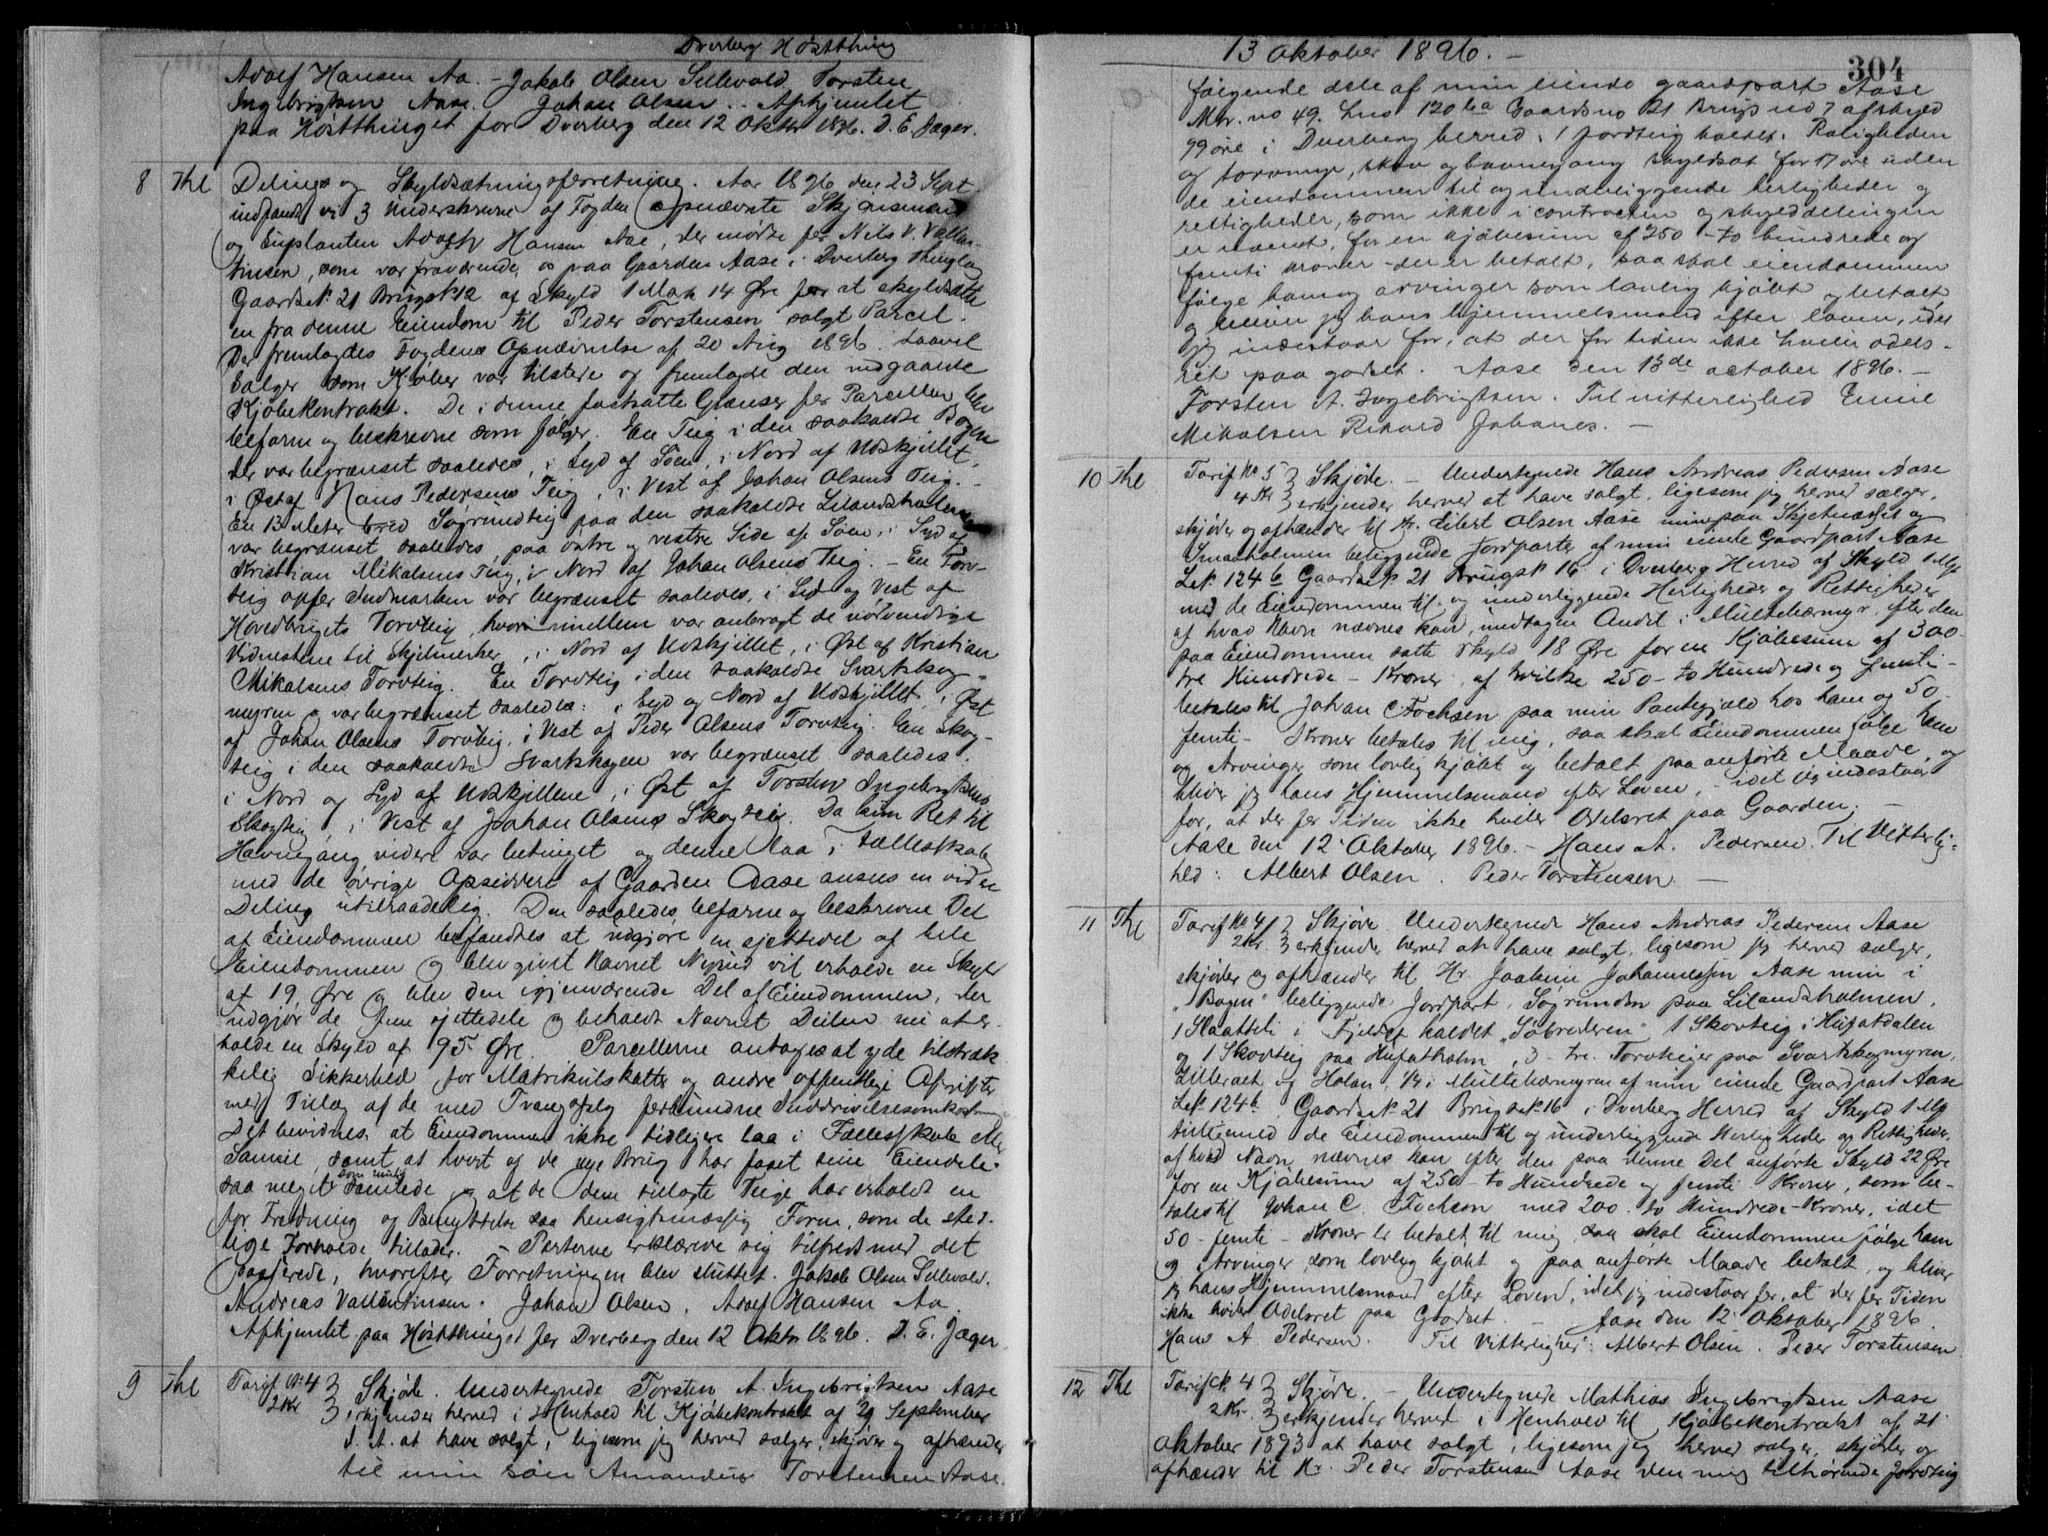 Dverberg Høstthing
Adolf Hansen Aa. - Jakob Olsen Sellevold Torsten
Ingebrigtsen Aase. Johan Olsen. - Afhjemlet
paa Høstthinget for Dverberg den 12 Oktbr 1896. J. E. Jæger.
8 Thl Delings og Skyldsætningsforretning. Aar 1896 den 23 Sept
indfandt vi 3 Underskrevne af Fogden opnævnte Skjønsmænd
og Enplanten Adolf Hansen Aae, der mødte for Nils V. Vallen-
tinsen, som var fraværende, os paa Gaarden Aase i Dverberg Thinglag
Gaards№ 21 Brugs№ 12 af Skyld 1 Mark 14 Øre for at skyldsætte
en fra denne Eiendom til Peder Torstensen solgt Parcel.
Der fremlagdes Fogdens Opnævnelse af 20 Aug 1896. Saavel
Sælger som Kjøber var tilstede og fremlagde den indgaaede
Kjøbekontrakt. De i denne fastsatte Grænser for Parcellen blev
befarne og beskrevne som følger. En Teig i den saakaldte Bogen
der var begrænset saaledes, i Syd af Søen, i Nord af Udskjillet,
i Øst af Hans Pedersens Teig, i Vest af Johan Olsens Teig. -
En 13 Meter bred Søgrundteig paa den saakaldte Lilandsholmen
var begrænset saaledes, paa østre og vestre Side af Søen, i Syd af
Kristian Mikalsens Teig, i Nord af Johan Olsens Teig. - En Torv-
teig opfor Indmarken var begrænset saaledes, i Syd og Vest af
Hovedbrugets Torvteig, hvorimellem var anbragt de nødvendige
Vidnestene til Skjelmerker, i Nord af Udskjillet, i Øst af Kristian
Mikalsens Torvteig. En Torvteig i den saakaldte Svartskog-
myren og var begrænset saaledes: i Syd og Nord af Udskjillet, i Øst
af Johan Olsens Torvteig, i Vest af Peder Olsens Torvteig. En Skog-
teig i den saakaldte Svartskogen var begrænset saaledes.
i Nord og Syd af Udskjillene, i Øst af Torsten Ingebrigtsens
Skogteig, i Vest af Johan Olsens Skogteig. Da kun Ret til
Havnegang videre var betinget og denne laa i Fællesskab
med de øvrige Opsiddere af Gaarden Aase ansees en videre
Deling utilraadelig. Den saaledes befarne og beskrevne Del
af Eiendommen befandtes at udgjøre en sjettedel af hele
Eiendommen og blev givet Navnet Nyrud vil erholde en Skyld
af 19 Øre og blev den igjenværende Del af Eiendommen, der
udgjør de fem sjettedele og beholdt Navnet Deilen nu at er-
holde en Skyld af 95 Øre. Parcellerne antages at yde tilstræk-
kelig Sikkerhed for Matrikulskatter og andre offentlige Afgifter
med Tillæg af de med Tvangssalg forbundne Inddrivelsesomkostninger
Det bevidnes, at Eiendommen ikke tidligere laa i Fællesskab eller
Sameie, samt at hvert af de nye Brug har faaet sine Eiendele
saa meget som mulig samlede og at de dem tillagte Teige har erholdt en
for Fredning og Benyttelse saa hensigtsmæssig Form, som de sted-
lige Forholde tillader. - Parterne erklærede sig tilfreds med det
passerede, hvorefter Forretningen blev sluttet. Jakob Olsen Sellevold.
Andreas Vallentinsen. Johan Olsen. Adolf Hansen Aa.
Afhjemlet paa Høstthinget for Dverberg den 12 Oktbr 1896. J. E. Jæger
9 Thl Tarif № 4 Skjøde. Undertegnede Torsten A. Ingebrigtsen Aase
2 Kr erkjender herved i Henhold til Kjøbekontrakt af 29 September
d. A. at have solgt, ligesom jeg herved sælger, skjøder og afhænder
til min søn Amandus Torstensen Aase.
13 Oktober 1896. -
304
følgende dele af min eiende gaardpart Aase
Mtr. no 49. Lno 120 ba Gaardsno 21 Brugs no 7 afskyld
99 øre i Dverberg herred, 1 jordteig kaldet Roligheden
og torvmyr, skov og havnegang skyldsat for 17 øre uden
de eiendommen til og underliggende herligheder og
rettigheder, som ikke i contracten og skylddelingen
er nævnt, for en kjøbesum af 250 - to hundrede og
femti kroner - der er betalt, saa skal eiendommen
følge ham og arvinger som lovlig kjøbt og betalt
og bliver jeg hans hjemmelsmand efter loven, idet
jeg indestaar for, at der for tiden ikke hviler odels-
ret paa godset. Aase den 13de october 1896. -
Torsten A. Ingebrigtsen. Til vitterlighed Emil
Mikalsen Rikard Johanes. -
10 Thl Tarif № 5 Skjøde. - Undertegnede Hans Andreas Pedersen Aase
4 Kr erkjender herved at have solgt, ligesom jeg herved sælger,
skjøder og afhænder til Hr. Eibert Olsen Aase mine paa Skjetnæsset og
Smaaholmen beliggende Jordparter af min eiende Gaardpart Aase
L№ 124 b Gaards№ 21 Brugs№ 16 i Dverberg Herred af Skyld 1 Mk
med de Eiendommen til og underliggende Herligheder og Rettigheder
af hvad Navn nævnes kan, undtagen Andel i Multebærmyr, efter den
paa Eiendommen satte Skyld 18 Øre for en Kjøbesum af 300-
tre Hundrede - Kroner, af hvilke 250 - to Hundrede og femti -
betales til Johan C Fochsen paa min Pantegjæld hos ham og 50-
femti - Kroner betales til mig, saa skal Eiendommen følge ham
og Arvinger som lovlig kjøbt og betalt paa anførte Maade, og
bliver jeg hans Hjemmelsmand efter Loven, - idet jeg indestaar
for, at der for Tiden ikke hviler Odelsret paa Gaarden. -
Aase den 12 Oktober 1896. - Hans A. Pedersen. Til Vitterlig-
hed: Albert Olsen. Peder Torstensen. -
11 Thl Tarif № 4 Skjøde. Undertegnede Hans Andreas Pedersen Aase
2 Kr. erkjende herved at have solgt, ligesom jeg herved sælger,
skjøder og afhænder til Hr. Joakim Johannessen Aase min i
"Bogen" beliggende Jordpart, Søgrunden paa Lilandsholmen,
1 Slaatteli i Fjeldet kaldet "Søbrederen" 1 Skovteig i Hufatdalen
og 1 Skovteig paa Hufatholm, 3 - tre Torvteiger paa Svartskogmyren,
og Holan, 1/4 i Multebærmyren af min eiende Gaardpart Aase
L№ 124 b, Gaards№ 21 Brugs№ 16 i Dverberg Herred af Skyld 1 Mk
med de Eiendommen til og underliggende Herligheder og Rettigheder,
af hvad Navn nævnes kan efter den paa denne Del anførte Skyld 22 Øre
for en Kjøbesum af 250 - to Hundrede og femti Kroner, som be-
tales til Johan C. Fochsen med 200 - to Hundrede - Kroner, idet
50 - femti - Kroner er betalt til mig, saa skal Eiendommen følge ham
og Arvinger som lovlig kjøbt og paa anførte Maade betalt, og bliver
jeg hans Hjemmelsmand efter Loven, idet jeg indestaar for, at der for Tiden
ikke hviler Odelsret paa Godset. - Aase den 12 Oktober 1896.
Hans A. Pedersen. Til Vitterlighed: Albert Olsen. Peder Torstensen
12 Thl Tarif № 4 Skjøde. - Undertegnede Mathias Ingebrigtsen Aase
2 Kr. erkjender herved i Henhold til Kjøbekontrakt af 21
Oktober 1893 at have solgt, ligesom jeg herved sælger, skjøder og
afhænder til Hr. Peder Torstensen Aase den mig tilhørende Jordteig